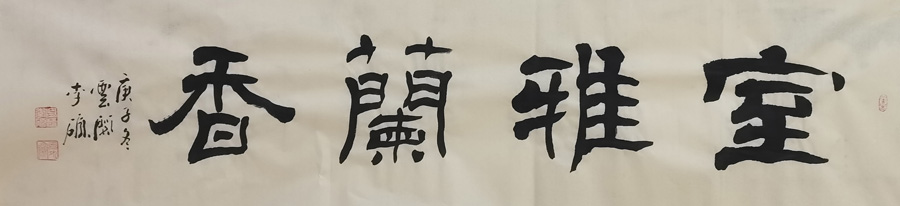 室雅蘭香
庚子冬
雲閣
李